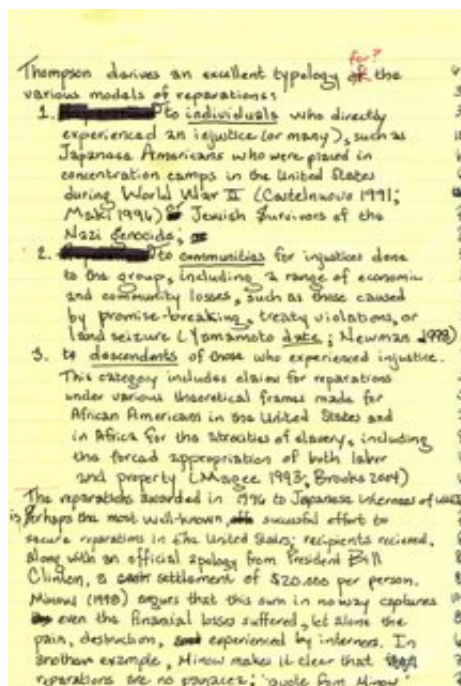 for?
Thompson derives an excellent typology of the
various models of reparations:
1. to individuals who directly
experienced an injustice (or many), such as
Japanese Americans who were placed in
concentration camps in the United States
during World War II (Castelnuovo 1991;
Maki 1996) Jewish Survivors of the
Nazi Genocide; or
2. to communities for injustices done
to the group, including a range of economic
and community losses, such as those caused
by promise-breaking, treaty violations, or
land seizure (Yamamoto date; Newman 1998)
3. to descendents of those who experienced injustice.
This category includes claims for reparations
under various theoretical frames made for
African Americans in the United States and
in Africa for the atrocities of slavery, including
the forced appropriation of both labor
and property (Magee 1993; Brooks 2004)
The reparations awarded in 1996 to Japanese internees of
is perhaps the most well-known, successful effort to
secure reparations in the United States; recipients recieved,
along with an official apology from President Bill
Clinton, a cash settlement of $20,000 per person.
Minow (1998) argues that this sum in no way captures
even the financial losses suffered, let alone the
pain, destruction, experienced by interners. In
another example, Minow makes it clear that
reparations are no panacea: "quote from Minow"